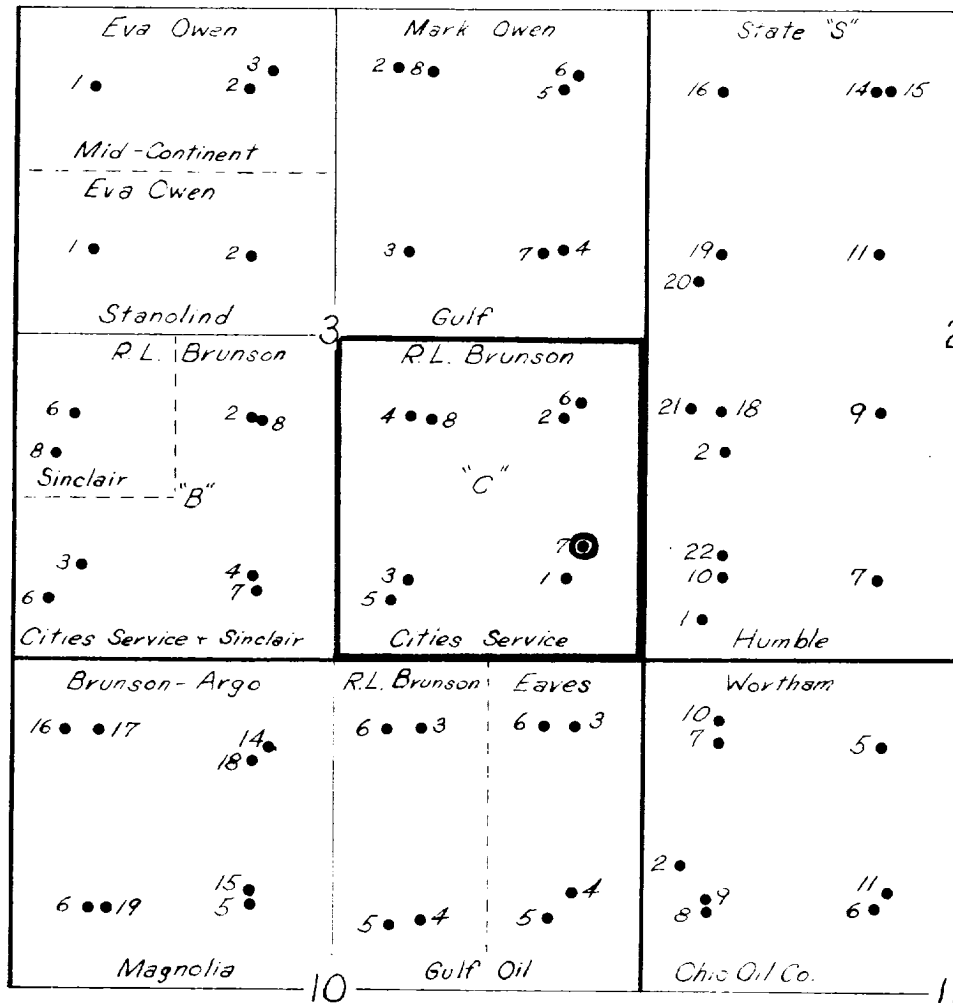 Eva Owen
3
1
2
Mid-Continent
Eva Owen
1
2
Stanolind
Mark Owen
2 8
6
5
3
7 4
Gulf
State "S"
16
14 15
19
11
20
21 18
9
2
22
10
7
1
Humble
3
2
R.L. Brunson
6
2 8
8
Sinclair
"B"
3
4
6
7
Cities Service + Sinclair
R.L. Brunson
4 8
6
2
"C"
7
3
1
5
Cities Service
Brunson-Argo
16 17
14
18
15
6 19
5
Magnolia
R.L. Brunson
6 3
5 4
Eaves
6 3
4
5
Gulf Oil
Wortham
10
7
5
2
9
11
8
6
Ohio Oil Co.
10
1